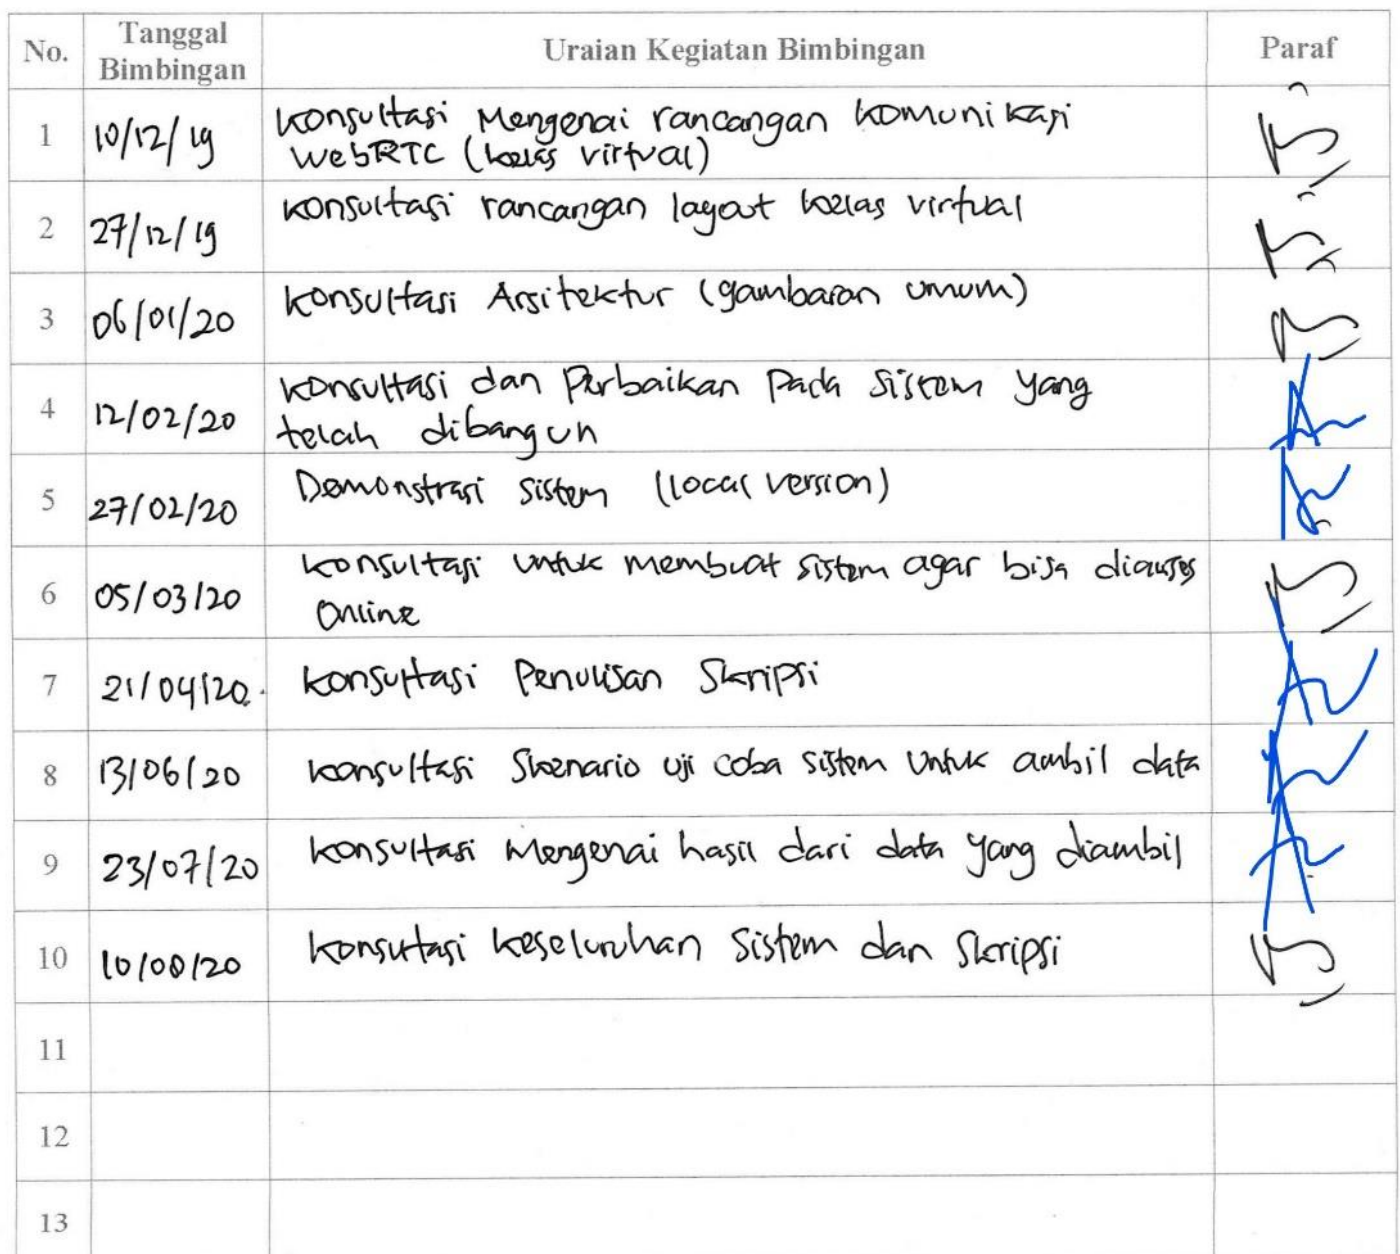 No. Tanggal Bimbingan Uraian Kegiatan Bimbingan Paraf
1 10/12/19 Konsultasi Mengenai rancangan komunikasi
WebRTC (kelas virtual)
2 27/12/19 Konsultasi rancangan layout kelas virtual
3 06/01/20 Konsultasi Arsitektur (gambaran umum)
4 12/02/20 Konsultasi dan Perbaikan Pada Sistem yang
telah dibangun
5 27/02/20 Demonstrasi sistem (local version)
6 05/03/20 Konsultasi untuk membuat sistem agar bisa diakses
Online
7 21/04/20. Konsultasi Penulisan Skripsi
8 13/06/20 Konsultasi Skenario uji coba sistem untuk ambil data
9 23/07/20 Konsultasi Mengenai hasil dari data yang diambil
10 10/08/20 Konsultasi Keseluruhan Sistem dan Skripsi
11
12
13